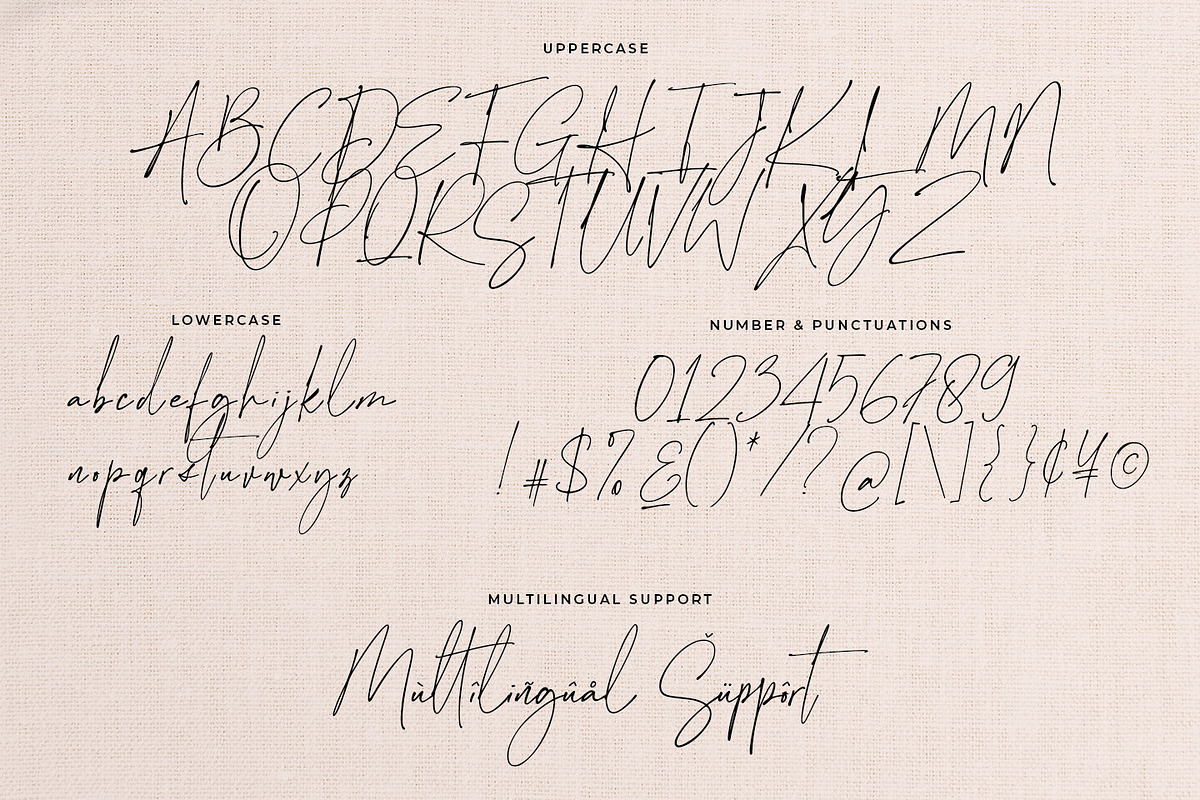 UPPERCASE
ABCDEFGHIJKLMN
OPQRSTUVWXYZ
LOWERCASE
abcdefghijklm
nopqrstuvwxyz
NUMBER & PUNCTUATIONS
0123456789
!#$%&()*/?@[\]{}¢¥©
MULTILINGUAL SUPPORT
Mùltîliñgûål Šüppôrt